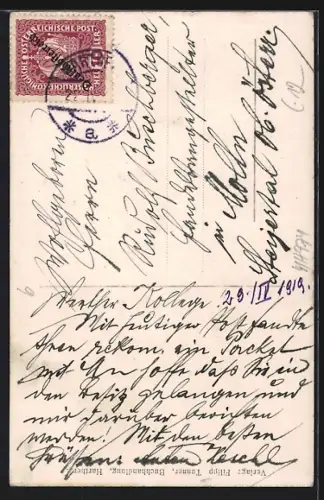 Wohlgeboren
Herrn
Rudolf Buchberger
Handelsangestellter
in Molln
Steyertal Ob. Österr.
29./IV 1919.
Werther Kollege
Mit heutiger Post sandte
Ihnen rekom. ein Packet
mit Uhr hoffe daß Sie in
den Besitz gelangen und
mir darüber berichten
werden. Mit den besten
Grüßen
Verlag: Filipp Tanner, Buchhandlung, Hartberg.
a.